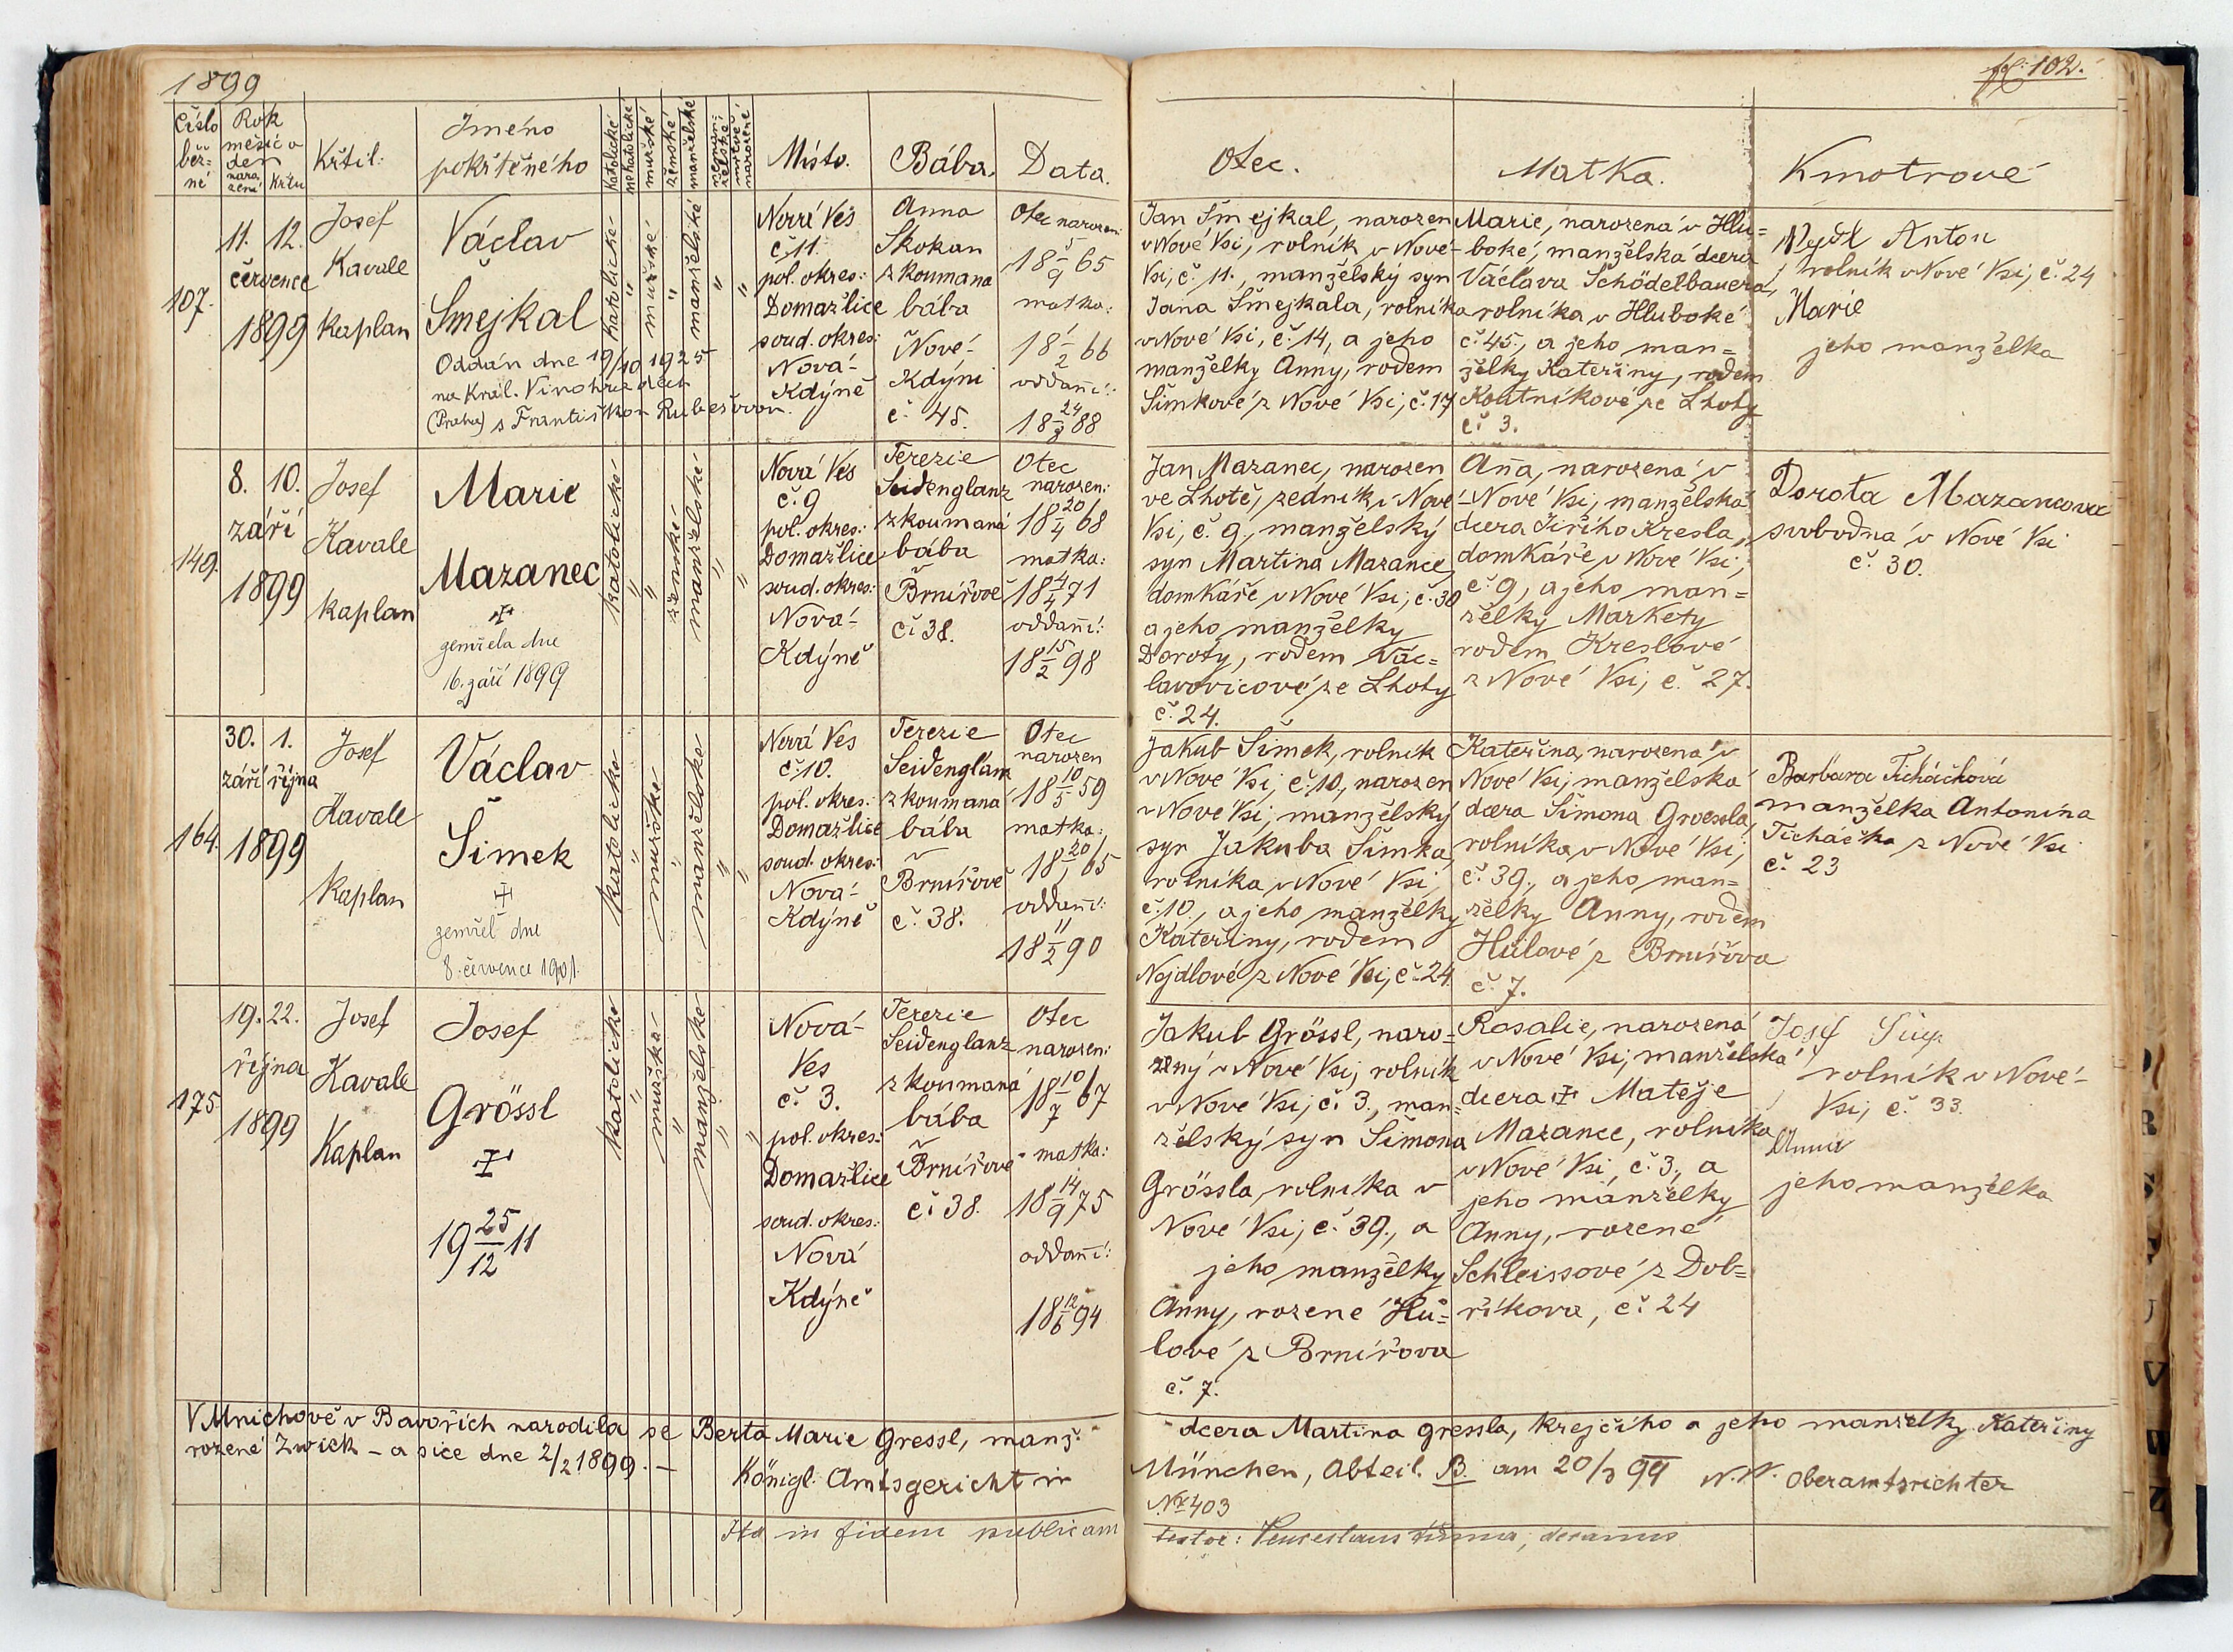 1899
fol: 102.
Číslo běž= né
Rok měsíc a den naro zení křtu
Křtil:
Jméno pokřtěného
katolické
nekatolické
mužské
ženské
manželské
neman= želské
mrtvě narozené
Místo.
Bába.
Data.
Otec.
Matka.
Kmotrové
107.
11. 12.
července
1899
Josef
Kavale
Kaplan
Václav
Šmejkal
Oddán dne 19/10 1925
na Král. Vinohradech
(Praha) s Františkou Rubešovou.
katolické
"
mužské
"
manželské
"
"
Nová Ves
č. 11.
pol. okres:
Domažlice
soud. okres:
Nová-
Kdýně
Anna
Skokan
zkoumaná
bába
v Nové-
Kdýni
č. 48.
Otec narozen:
18 5/9 65
matka:
18 1/2 66
oddaní:
18 24/3 88
Jan Šmejkal, narozen
v Nové Vsi, rolník v Nové-
Vsi, č. 11., manželský syn
Jana Šmejkala, rolníka
v Nové Vsi, č. 14, a jeho
manželky Anny, rodem
Šimkové z Nové Vsi, č. 17
Marie, narozená v Hlu=
boké, manželská dcera
Václava Schödelbauera,
rolníka v Hluboké
č. 45., a jeho man=
želky Kateřiny, rodem
Koutníkové ze Lhoty
č. 3.
Nejdl Anton
rolník v Nové Vsi, č. 24
Marie
jeho manželka
149.
8. 10.
září
1899
Josef
Kavale
Kaplan
Marie
Mazanec
zemřela dne
16. září 1899
katolické
"
"
ženské
manželské
"
"
Nová Ves
č. 9
pol. okres:
Domažlice
soud. okres:
Nová-
Kdýně
Terezie
Seidenglanz
zkoumaná
bába
v Brnířově
č. 38.
Otec
narozen:
18 20/4 68
matka:
18 4/4 71
oddaní:
18 15/2 98
Jan Mazanec, narozen
ve Lhotě, zedník v Nové
Vsi, č. 9, manželský
syn Martina Mazance,
domkáře v Nové Vsi, č. 30
a jeho manželky
Doroty, rodem Vác=
lavovicové ze Lhoty
č. 24.
Anna, narozená v
Nové Vsi, manželská
dcera Jiřího Kresla,
domkáře v Nové Vsi,
č. 9, a jeho man=
želky Markety
rodem Kreslové
z Nové Vsi, č. 27.
Dorota Mazancova
svobodná v Nové Vsi
č. 30.
164.
30. 1.
září října
1899
Josef
Kavale
Kaplan
Václav
Šimek
zemřel dne
8. července 1901.
katolické
"
mužské
"
manželské
"
"
Nová Ves
č. 10.
pol. okres:
Domažlice
soud. okres:
Nová-
Kdýně
Terezie
Seidenglanz
zkoumaná
bába
v Brnířově
č. 38.
Otec
narozen
18 10/5 59
matka:
18 20/1 65
oddaní:
18 11/2 90
Jakub Šimek, rolník
v Nové Vsi, č. 10, narozen
v Nové Vsi, manželský
syn Jakuba Šimka,
rolníka v Nové Vsi
č. 10., a jeho manželky
Kateřiny, rodem
Nejdlové z Nové Vsi, č. 24
Kateřina, narozená v
Nové Vsi, manželská
dcera Šimona Groessla,
rolníka v Nové Vsi,
č. 39., a jeho man=
želky Anny, rodem
Hůlové z Brnířova
č. 7.
Barbara Ticháčková
manželka Antonína
Ticháčka z Nové Vsi
č. 23
175.
19. 22.
října
1899
Josef
Kavale
Kaplan
Josef
Grössl
19 25/12 11
katolické
"
mužské
"
manželské
"
"
Nová-
Ves
č. 3.
pol. okres:
Domažlice
soud. okres:
Nová
Kdýně
Terezie
Seidenglanz
zkoumaná
bába
v Brnířově
č. 38.
Otec
narozen:
18 10/7 67
matka:
18 14/9 75
oddaní:
18 12/6 94
Jakub Grössl, naro=
zený v Nové Vsi, rolník
v Nové Vsi, č. 3., man=
želský syn Šimona
Grössla, rolníka v
Nové Vsi, č. 39., a
jeho manželky
Anny, rozené Hů=
lové z Brnířova
č. 7.
Rosalie, narozená
v Nové Vsi, manželská
dcera Matěje
Mazance, rolníka
v Nové Vsi, č. 3., a
jeho manželky
Anny, rozené
Schleissové z Dob=
říkova, č. 24
Josef
rolník v Nové-
Vsi, č. 33.
Anna
jeho manželka
V Mnichově v Bavořích narodila se Berta Marie Gressl, manž. dcera Martina Gressla, krejčího a jeho manželky Kateřiny
rozené Zwick – a sice dne 2/2 1899. –
Königl. Amtsgericht in München, Abteil. B. am 20/3 99 N. N. Oberamtsrichter
Nr. 403
Ita in fidem publicam testor: Venceslaus decanus